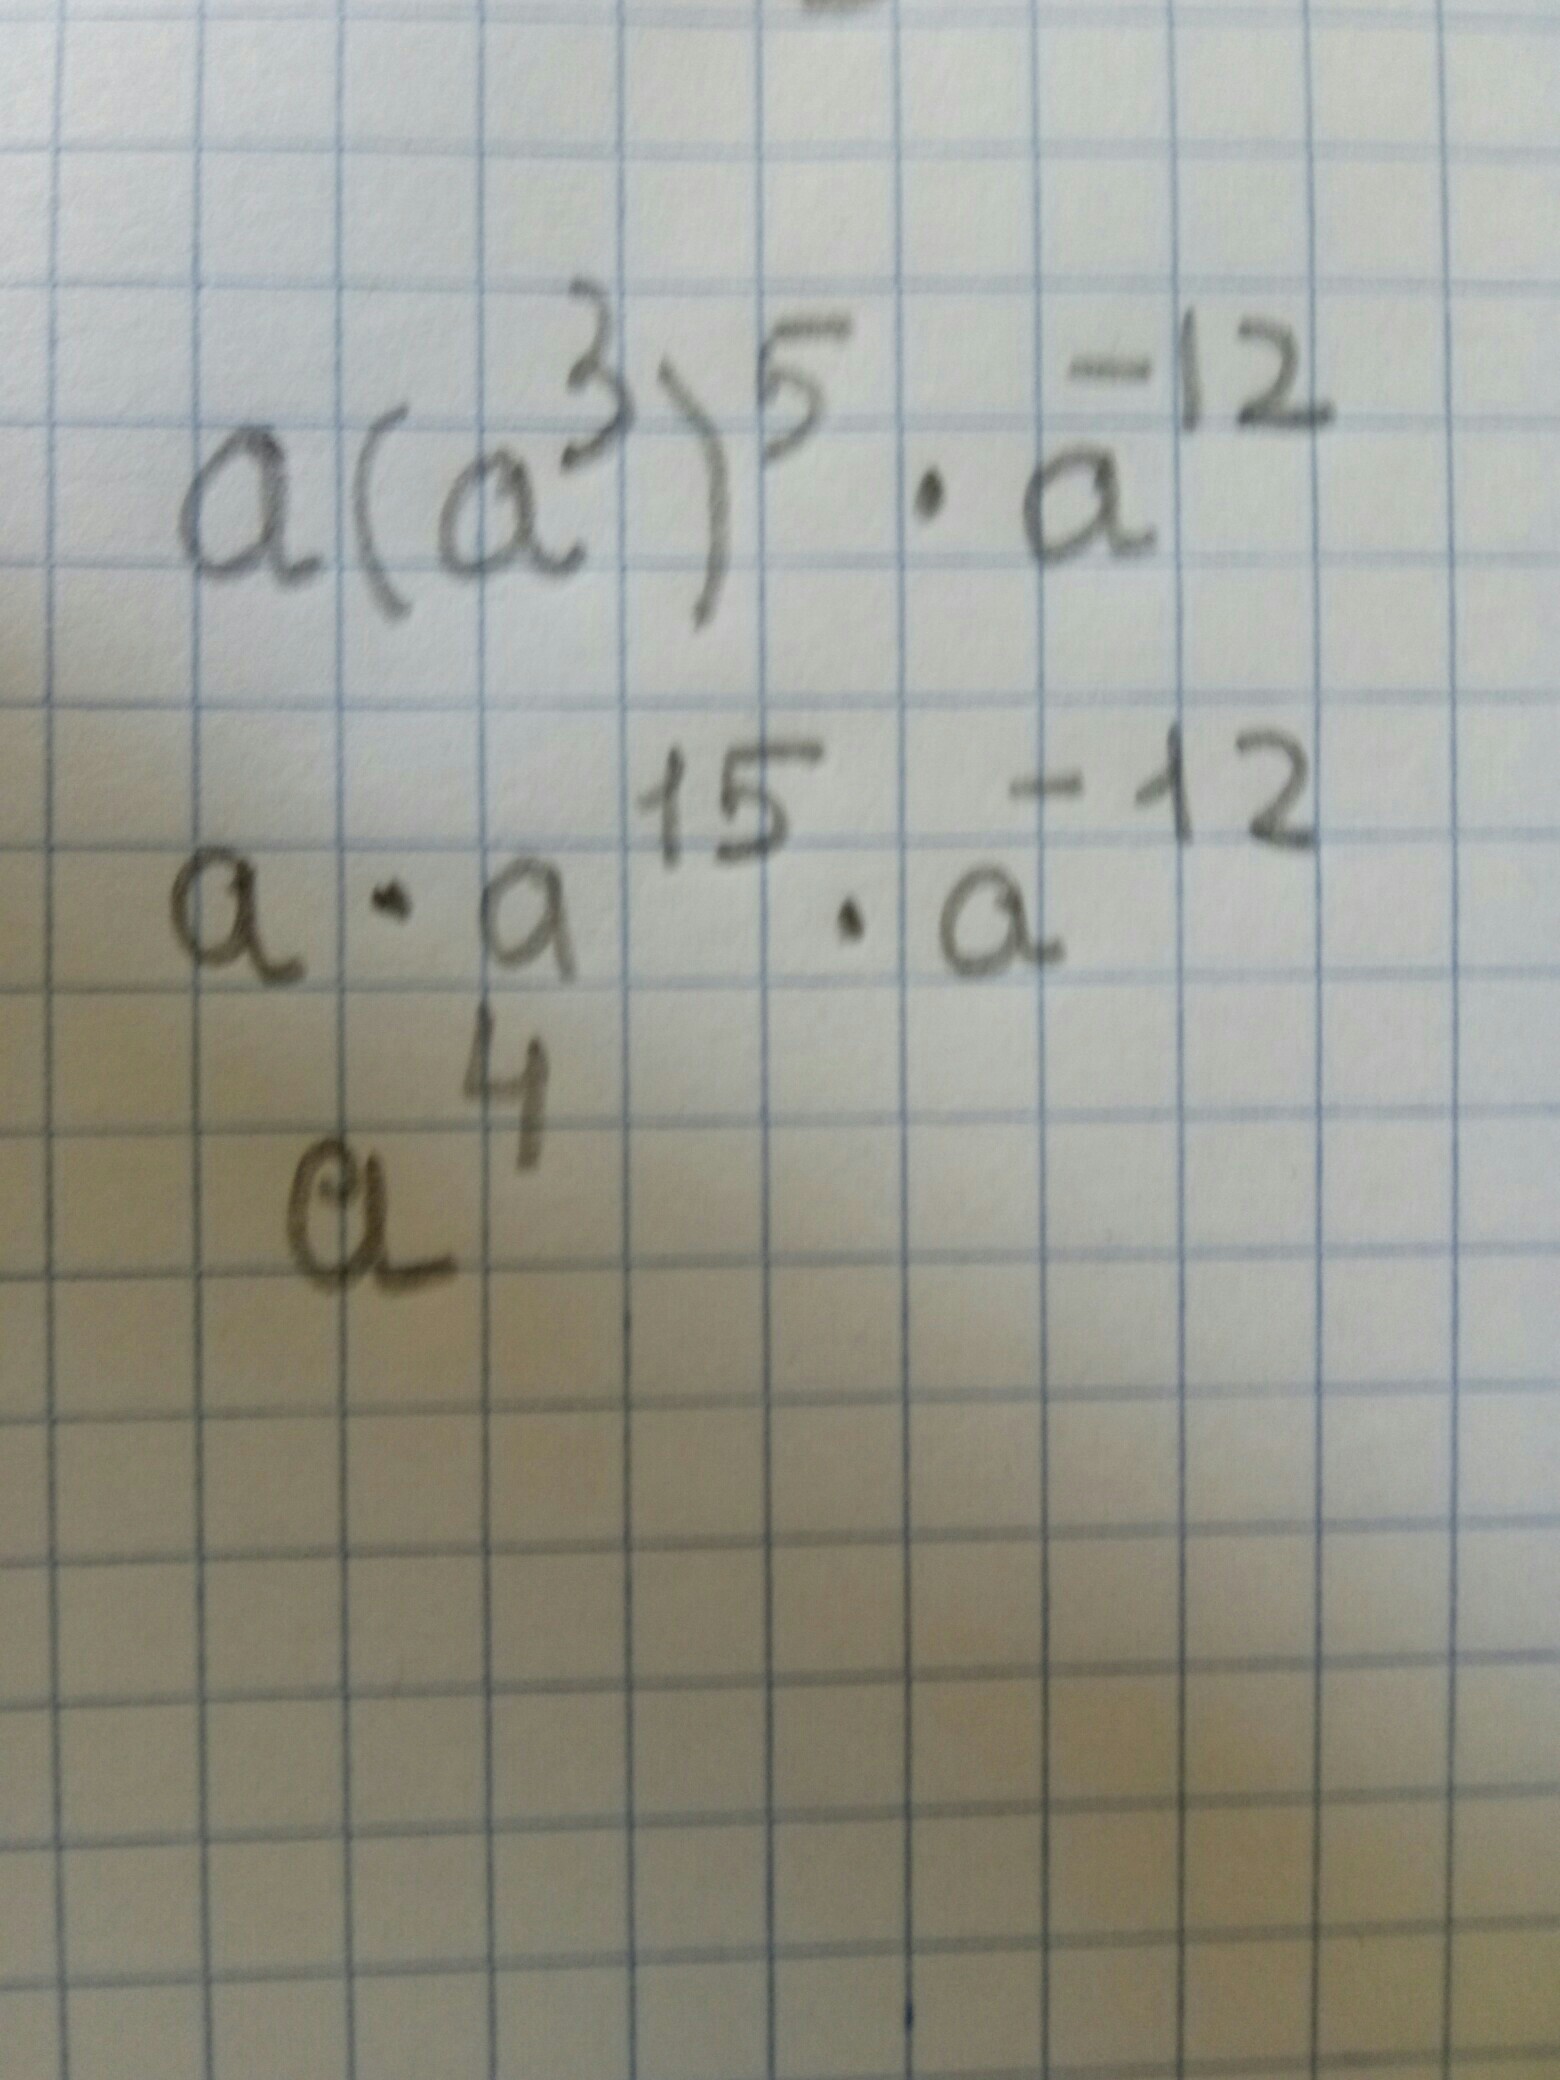 a(a³)⁵ · a⁻¹²
a · a¹⁵ · a⁻¹²
a⁴